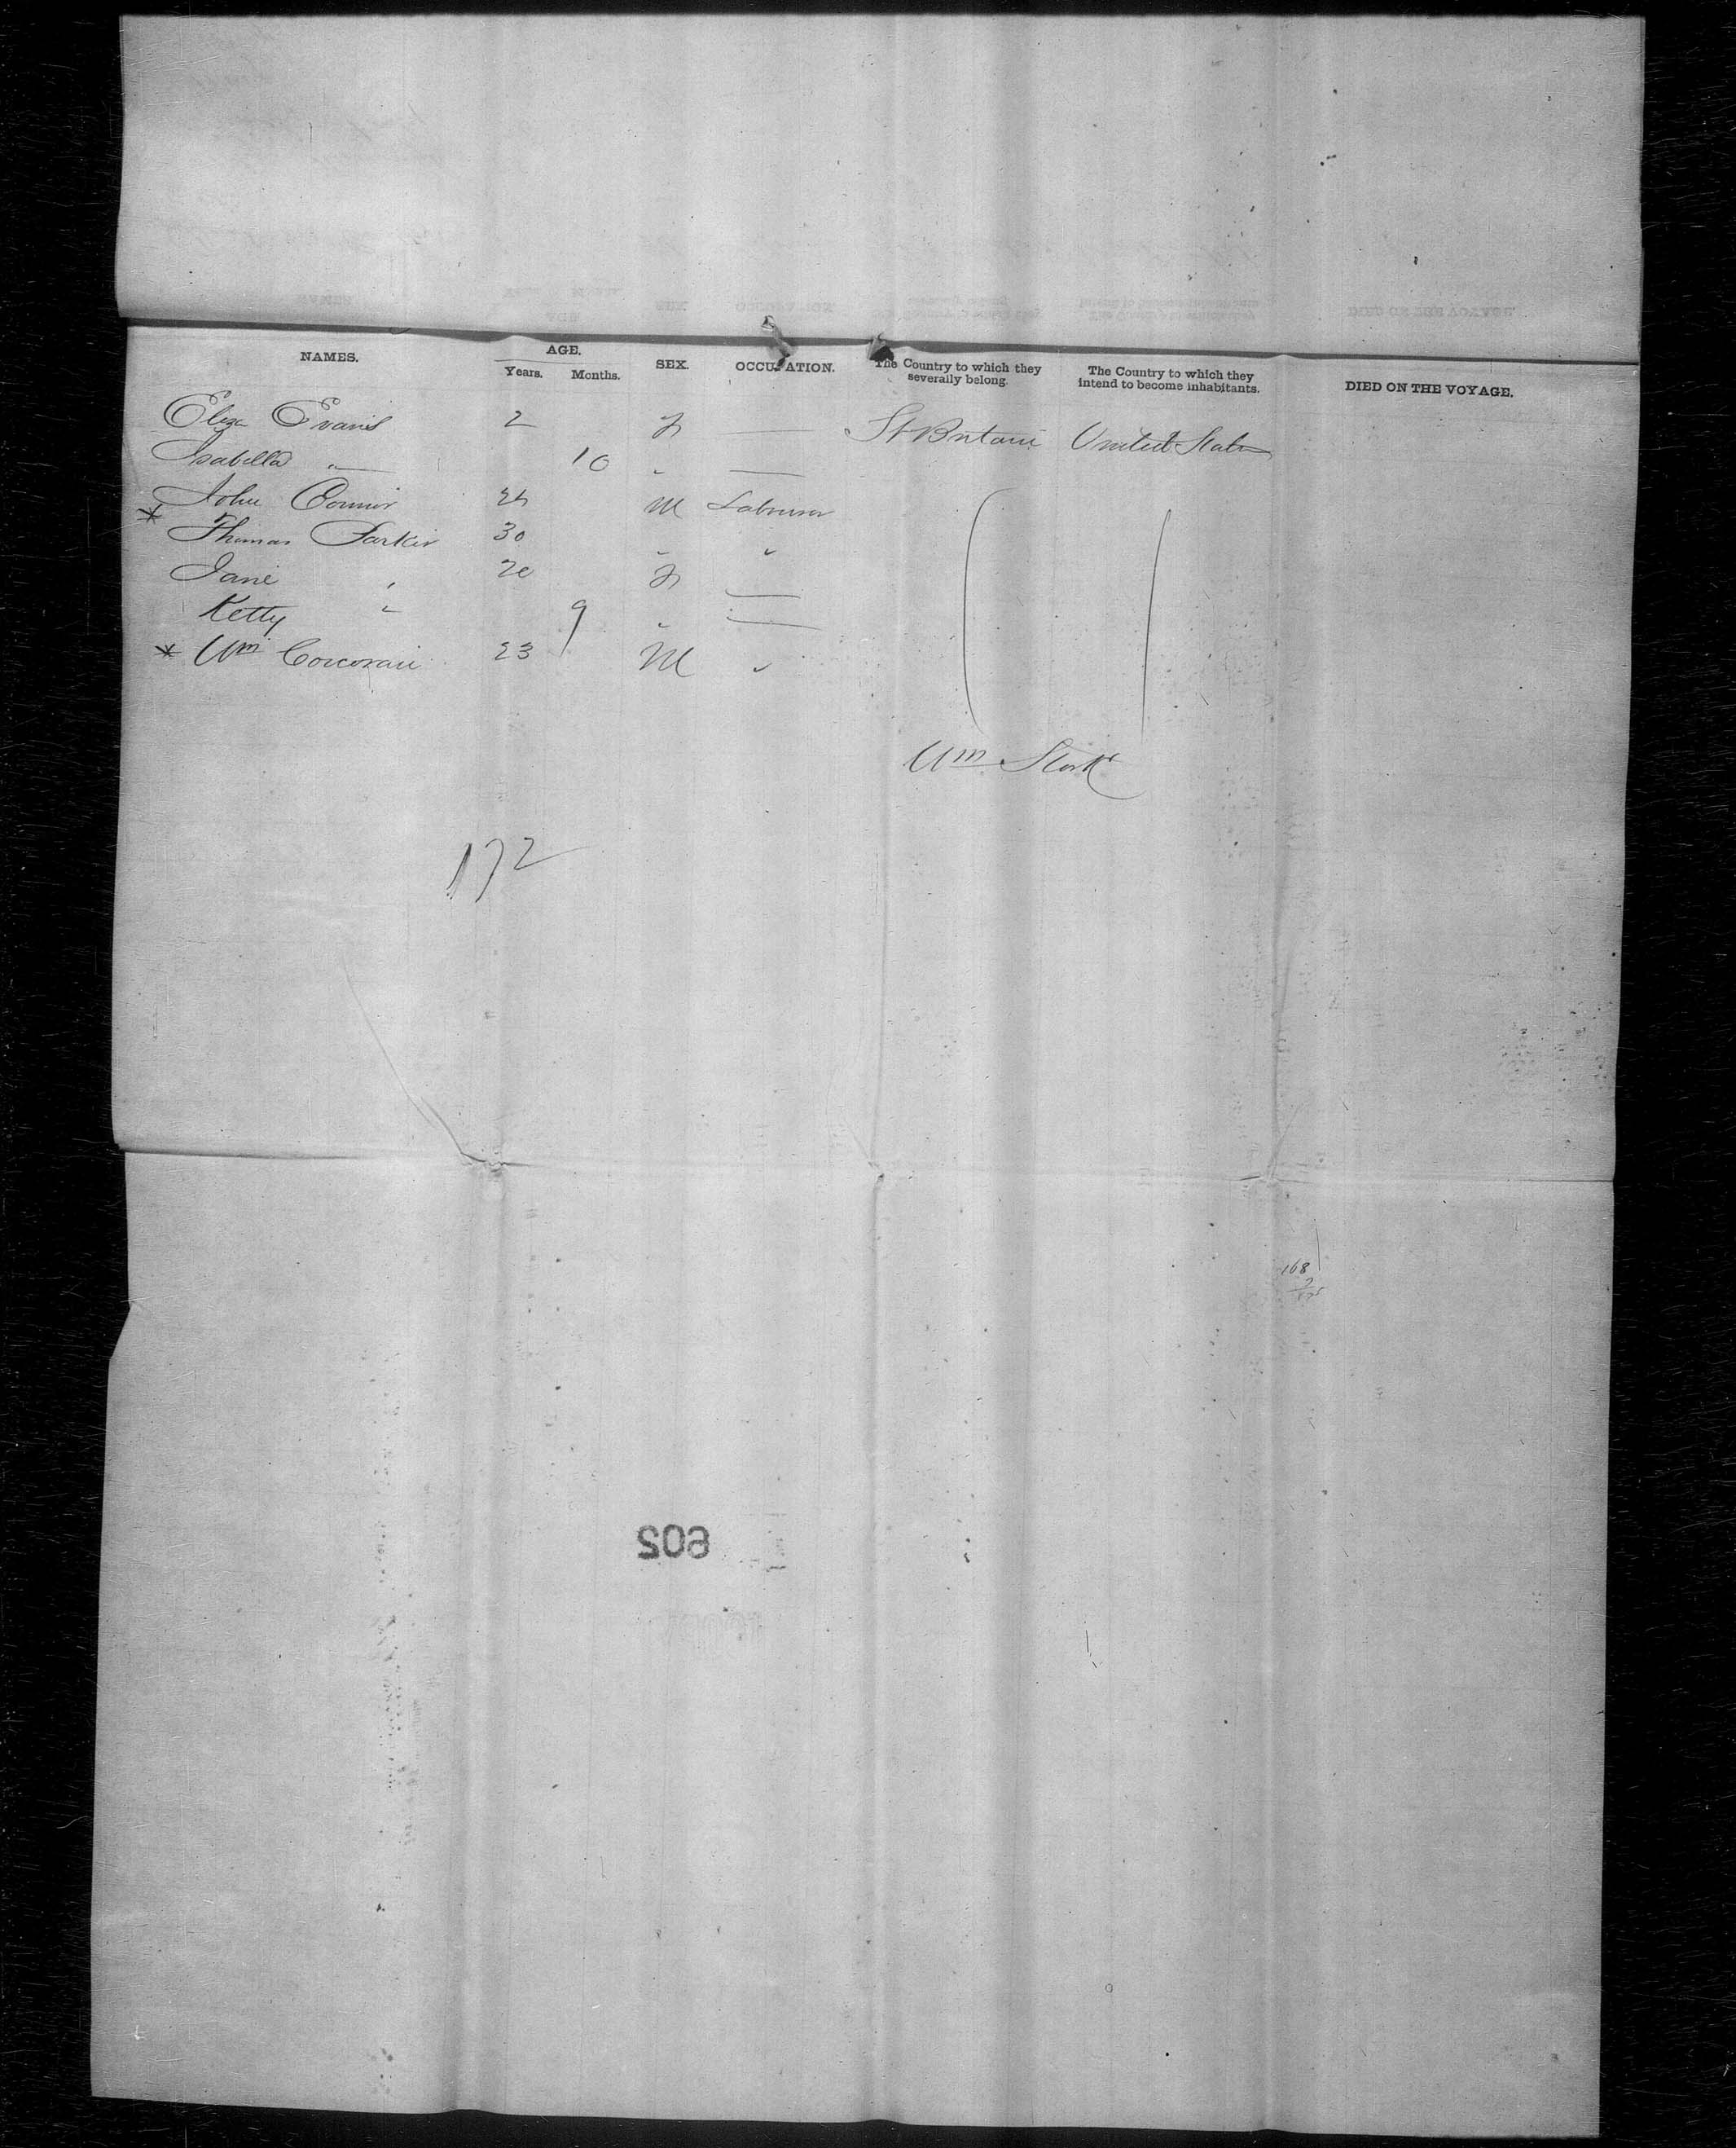 NAMES. AGE. Years. Months. SEX. OCCUPATION. The Country to which they severally belong. The Country to which they intend to become inhabitants. DIED ON THE VOYAGE.
Eliza Evans 2 F — Gt Britain United States
Isabella " 10 " —
John Connor 24 M Labourer
* Thomas Parker 30 " "
Jane " 20 F —
Ketty " 9 " —
* Wm Corcoran 23 M "
Wm
172
168
7
602